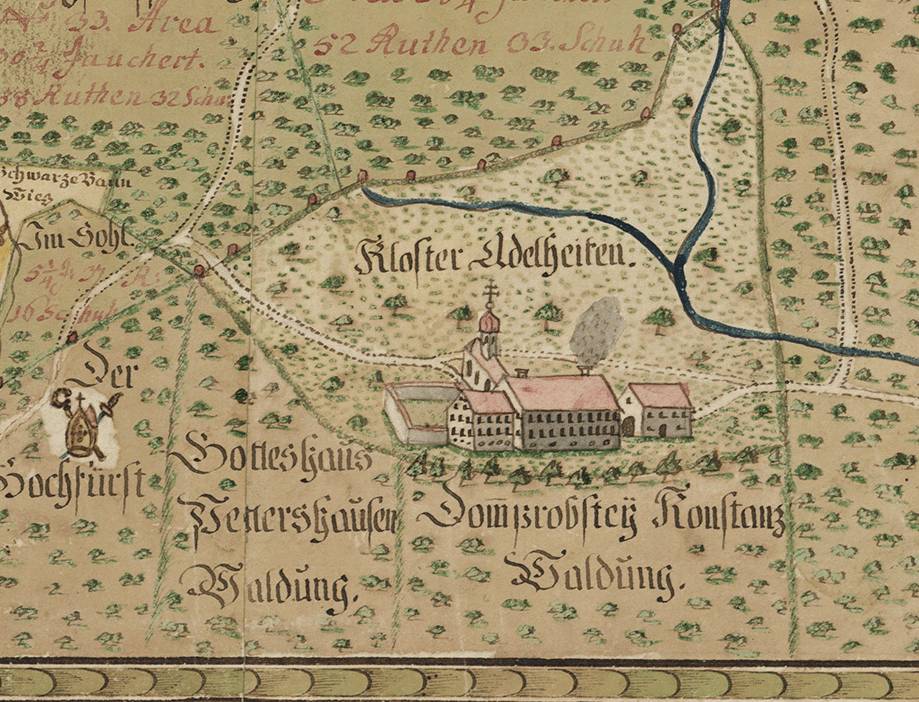 33. Area
Jauchert.
38 Ruthen 32 Schu
52 Ruthen 03. Schuh
Schwarze Bann
Wies
Im Sohl.
16 Schuh
Kloster Adelheiten.
Der
Hochfürst
Gotteshaus
Pettershaüsen
Waldüng.
Dom̅probsteÿ Konstanz
Waldüng.